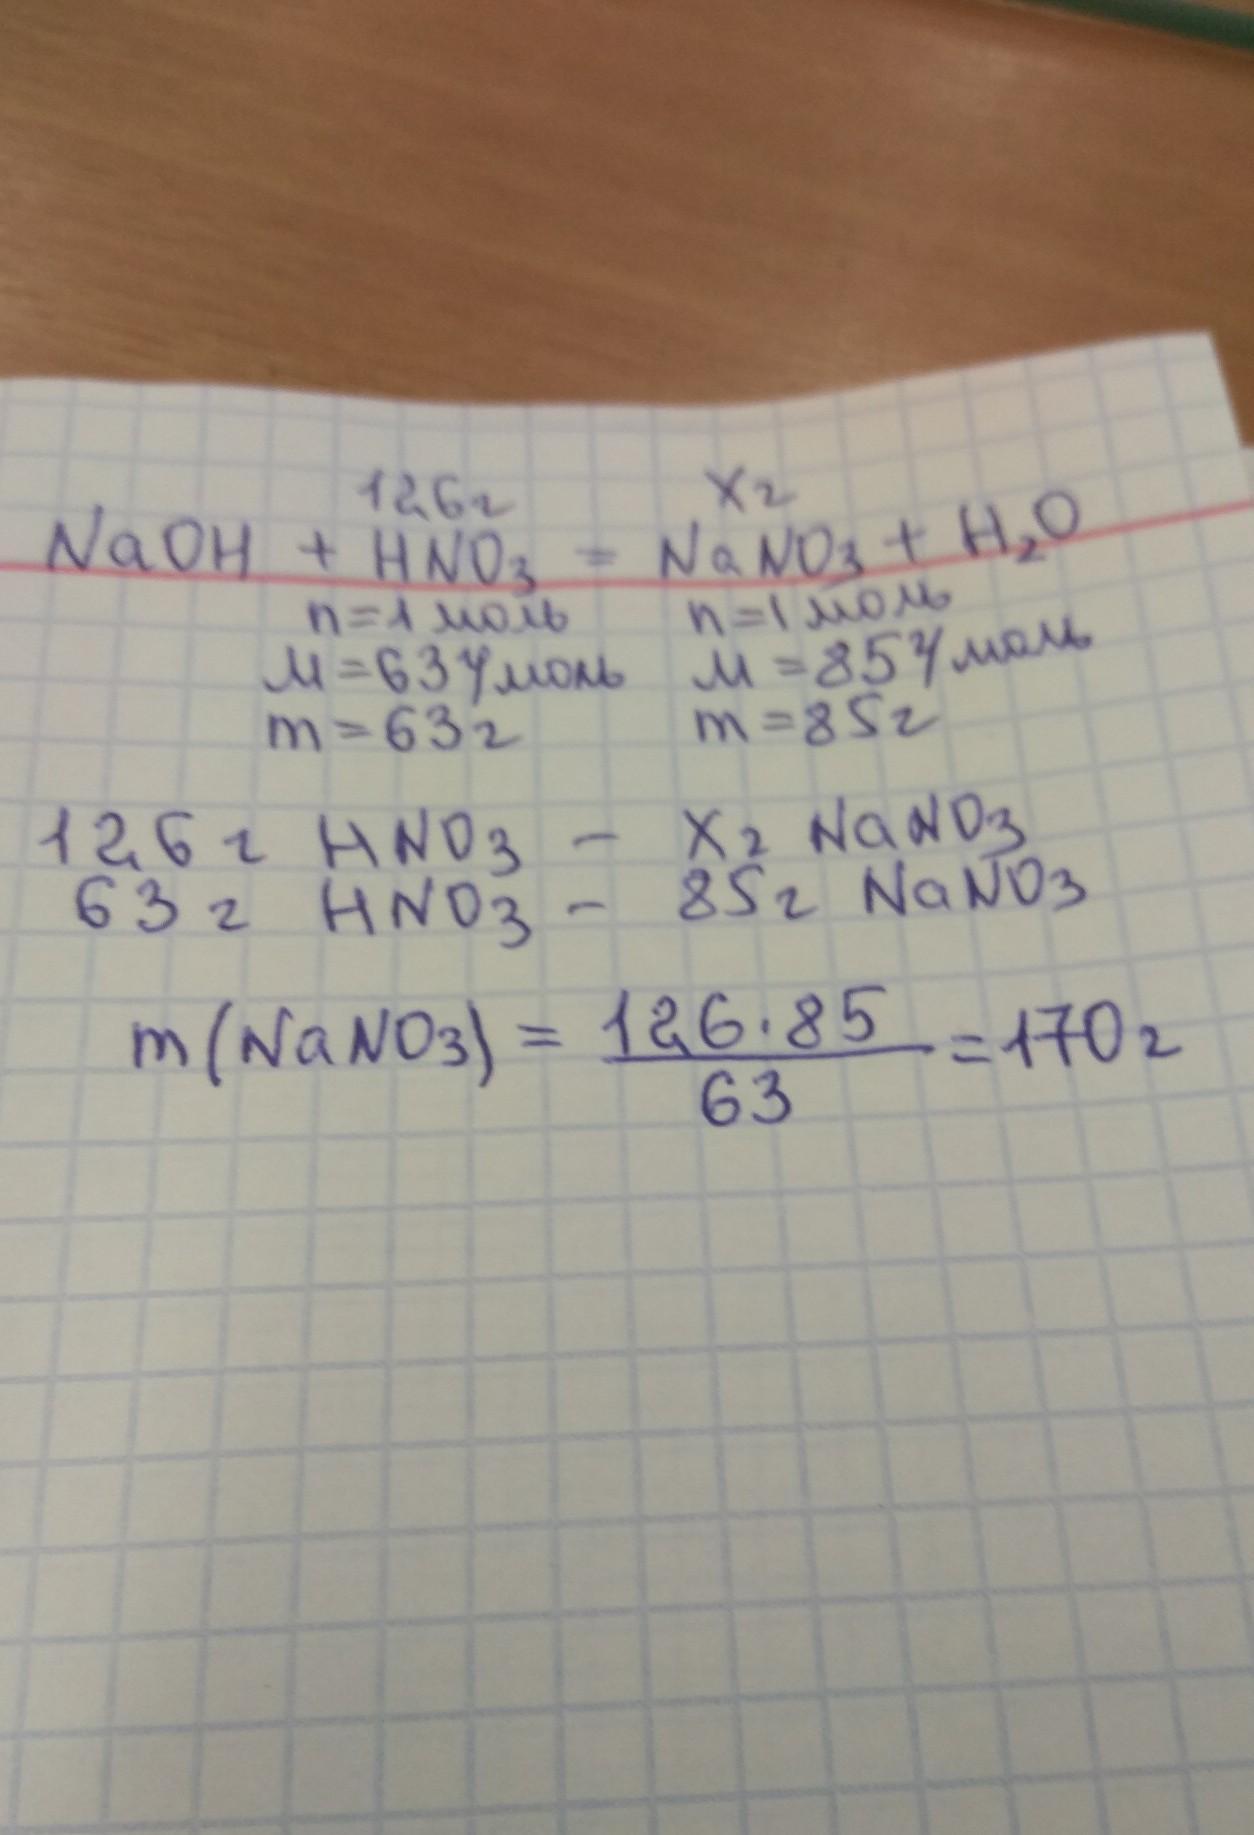 126г Xг
NaOH + HNO₃ = NaNO₃ + H₂O
n=1моль n=1моль
M=63г/моль M=85г/моль
m=63г m=85г
126г HNO₃ - Xг NaNO₃
63г HNO₃ - 85г NaNO₃
m(NaNO₃) = 126·85/63 = 170г